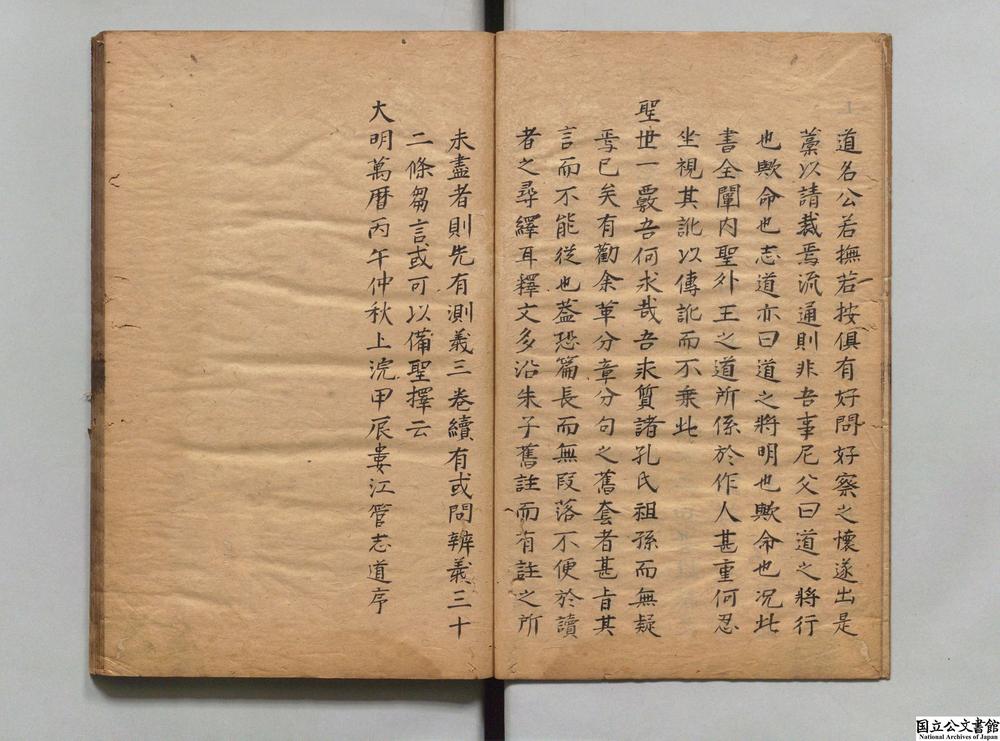 道名公若撫若按俱有好問好察之懷遂出是
藁以請裁焉流通則非吾事尼父曰道之將行
也歟命也志道亦曰道之將明也歟命也况此
書全闡内聖外王之道所係於作人甚重何忍
坐視其訛以傳訛而不乗此
聖世一覈吾何求哉吾求質諸孔氏祖孫而無疑
焉已矣有勸余革分章分句之舊套者甚旨其
言而不能從也葢恐篇長而無段落不便於讀
者之尋繹耳釋文多沿朱子舊註而有註之所
未盡者則先有測義三卷續有或問辨義三十
二條芻言或可以備聖擇云
大明萬曆丙午仲秋上浣甲辰婁江管志道序
国立公文書館
National Archives of Japan